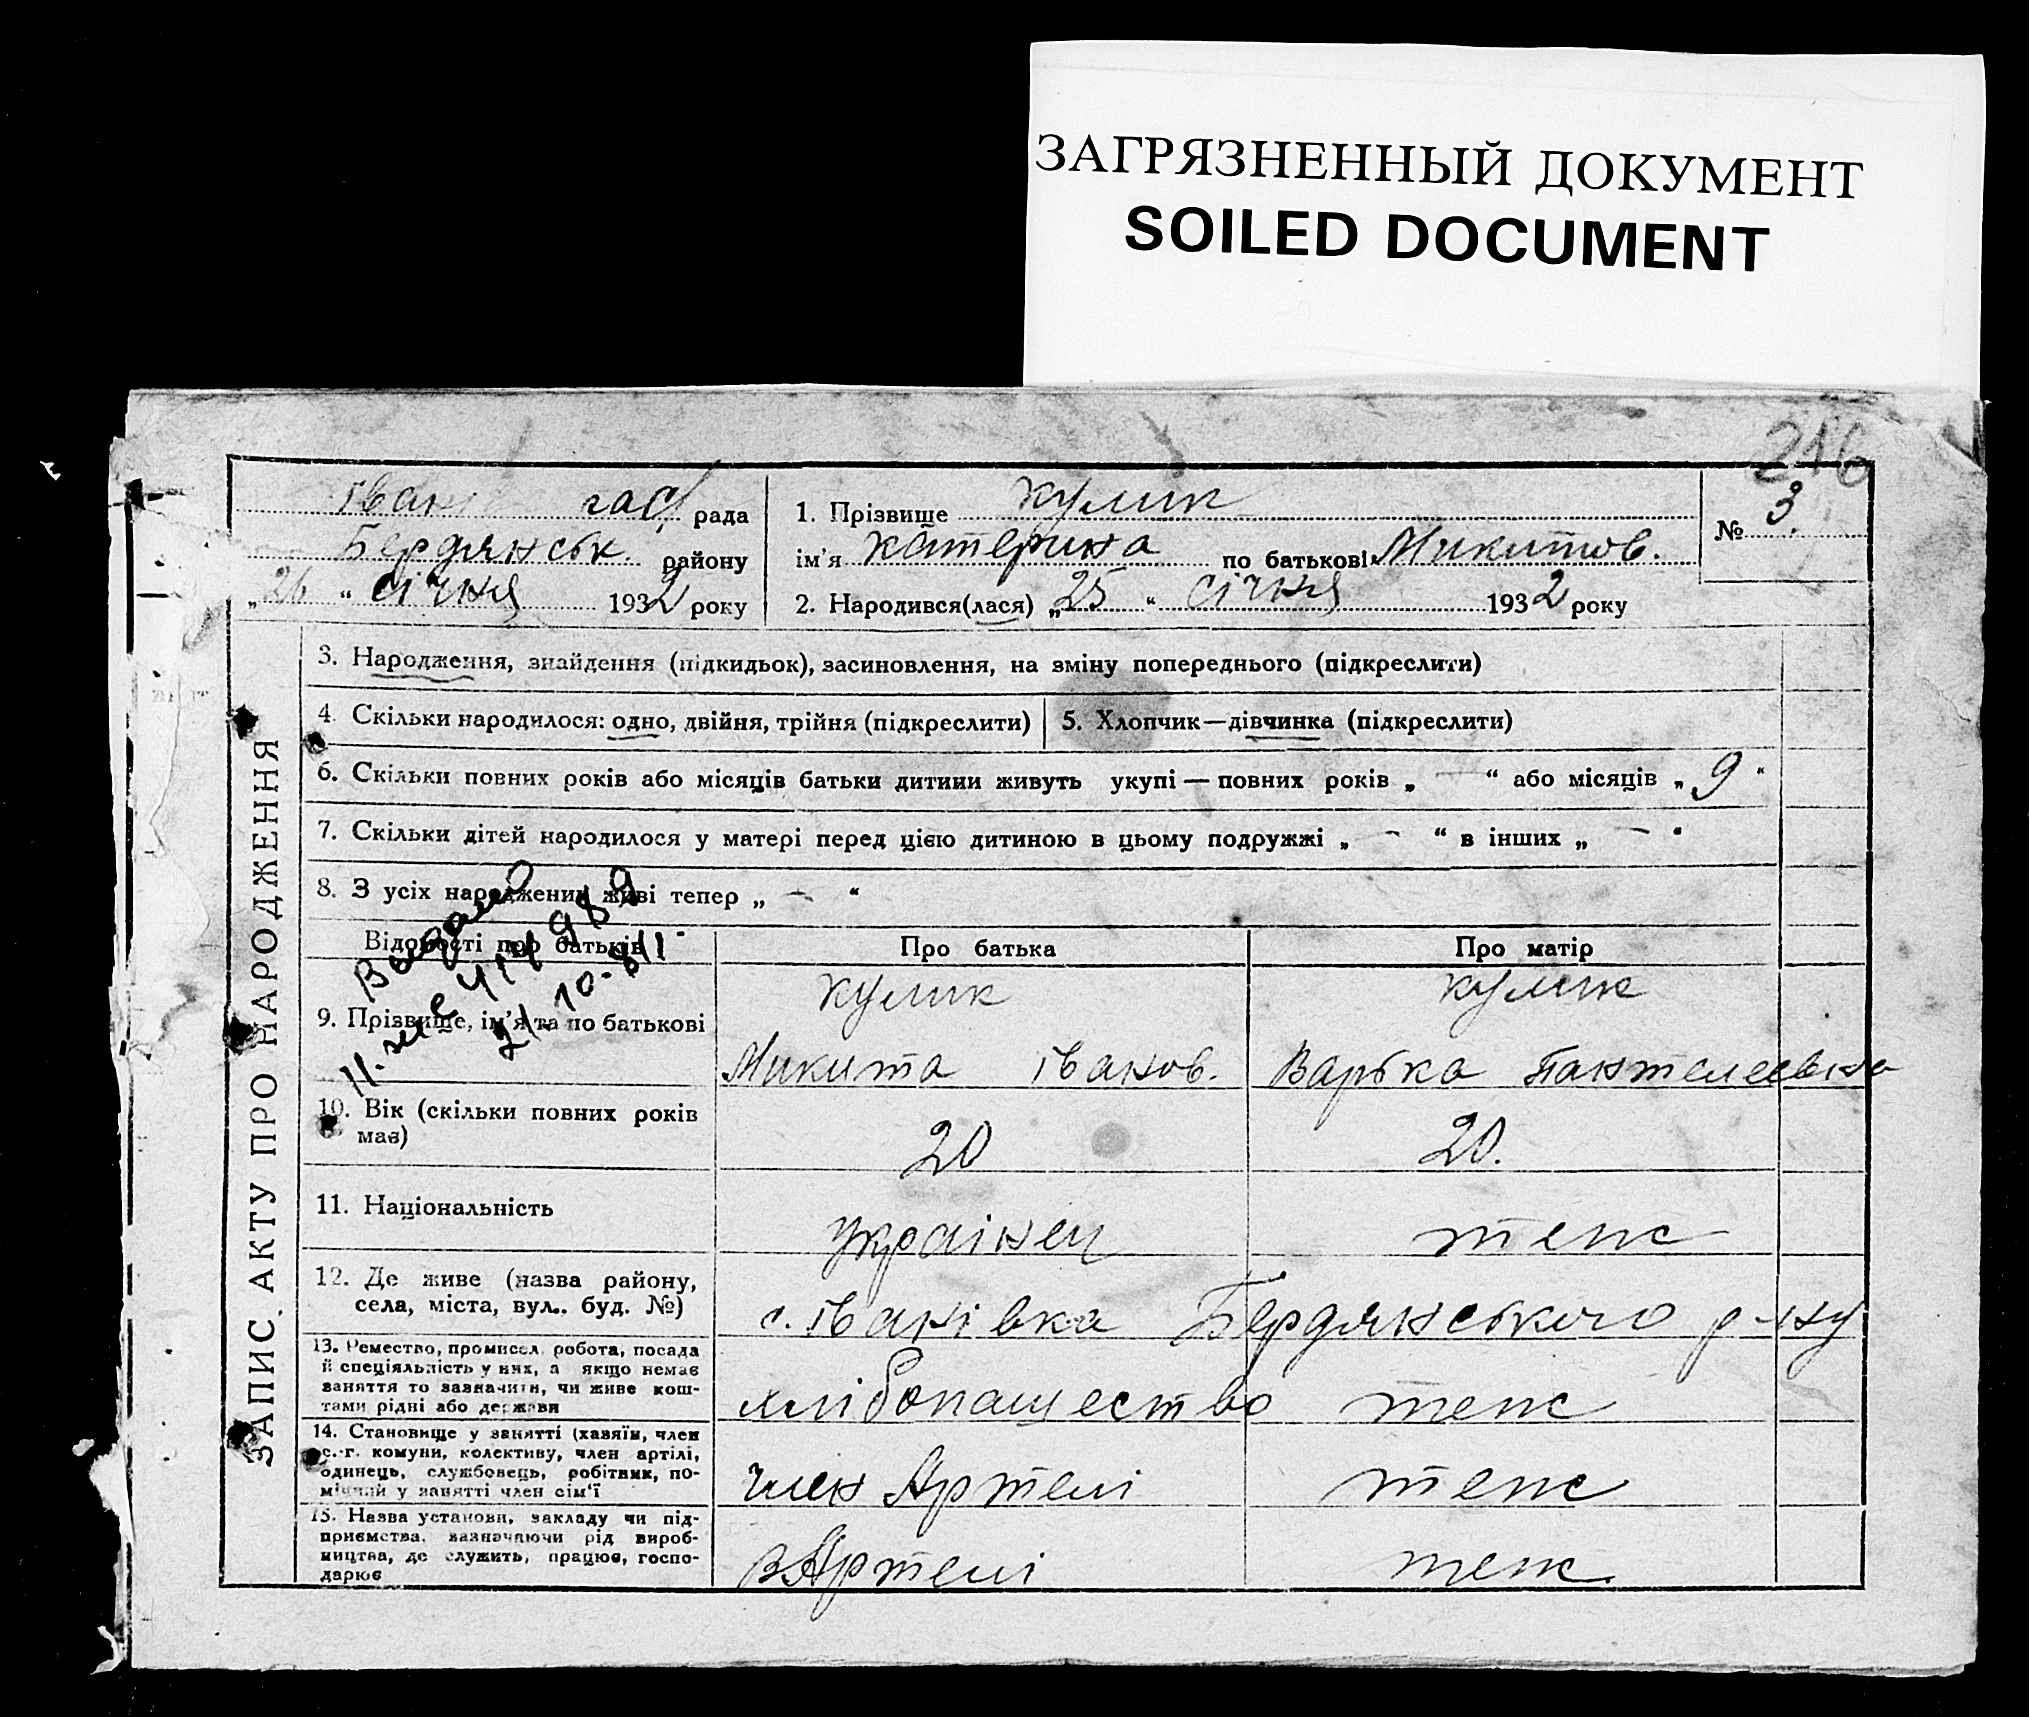 ЗАГРЯЗНЕННЫЙ ДОКУМЕНТ
SOILED DOCUMENT
216
рада
Бердянськ. району
„26“ січня 1932 року
1. Прізвище Кулик
ім’я Катерина по батькові Микитов.
2. Народився(лася) „25“ січня 1932 року
№ 3.
ЗАПИС АКТУ ПРО НАРОДЖЕННЯ
3. Народження, знайдення (підкидьок), засиновлення, на зміну попереднього (підкреслити)
4. Скільки народилося: одно, двійня, трійня (підкреслити)
5. Хлопчик—дівчинка (підкреслити)
6. Скільки повних років або місяців батьки дитини живуть укупі — повних років „ — “ або місяців „ 9 “
7. Скільки дітей народилося у матері перед цією дитиною в цьому подружжі „ — “ в інших „ — “
8. З усіх народжених живі тепер „ — “
Відомості про батьків
Про батька
Про матір
9. Прізвище, ім’я та по батькові
Кулик
Микита Іванов.
Кулик
Варька Пантелеевна
10. Вік (скільки повних років
має)
20
20.
11. Національність
Украінец
теж
12. Де живе (назва району,
села, міста, вул.. буд. №)
с. Іванівка Бердянського р-ну
13. Ремество, промисел, робота, посада
й спеціяльність у них, а якщо немає
заняття то зазначити, чи живе кош-
тами рідні або держави
хлібопашество
теж
14. Становище у занятті (хазяїн, член
с.-г. комуни, колективу, член артілі,
одинець, службовець, робітник, по-
мічний у занятті член сім’ї
член Артелі
теж
15. Назва установи, закладу чи під-
приємства, зазначаючи рід вироб-
ництва, де служить, працює, госпо-
дарює
в Артелі
теж